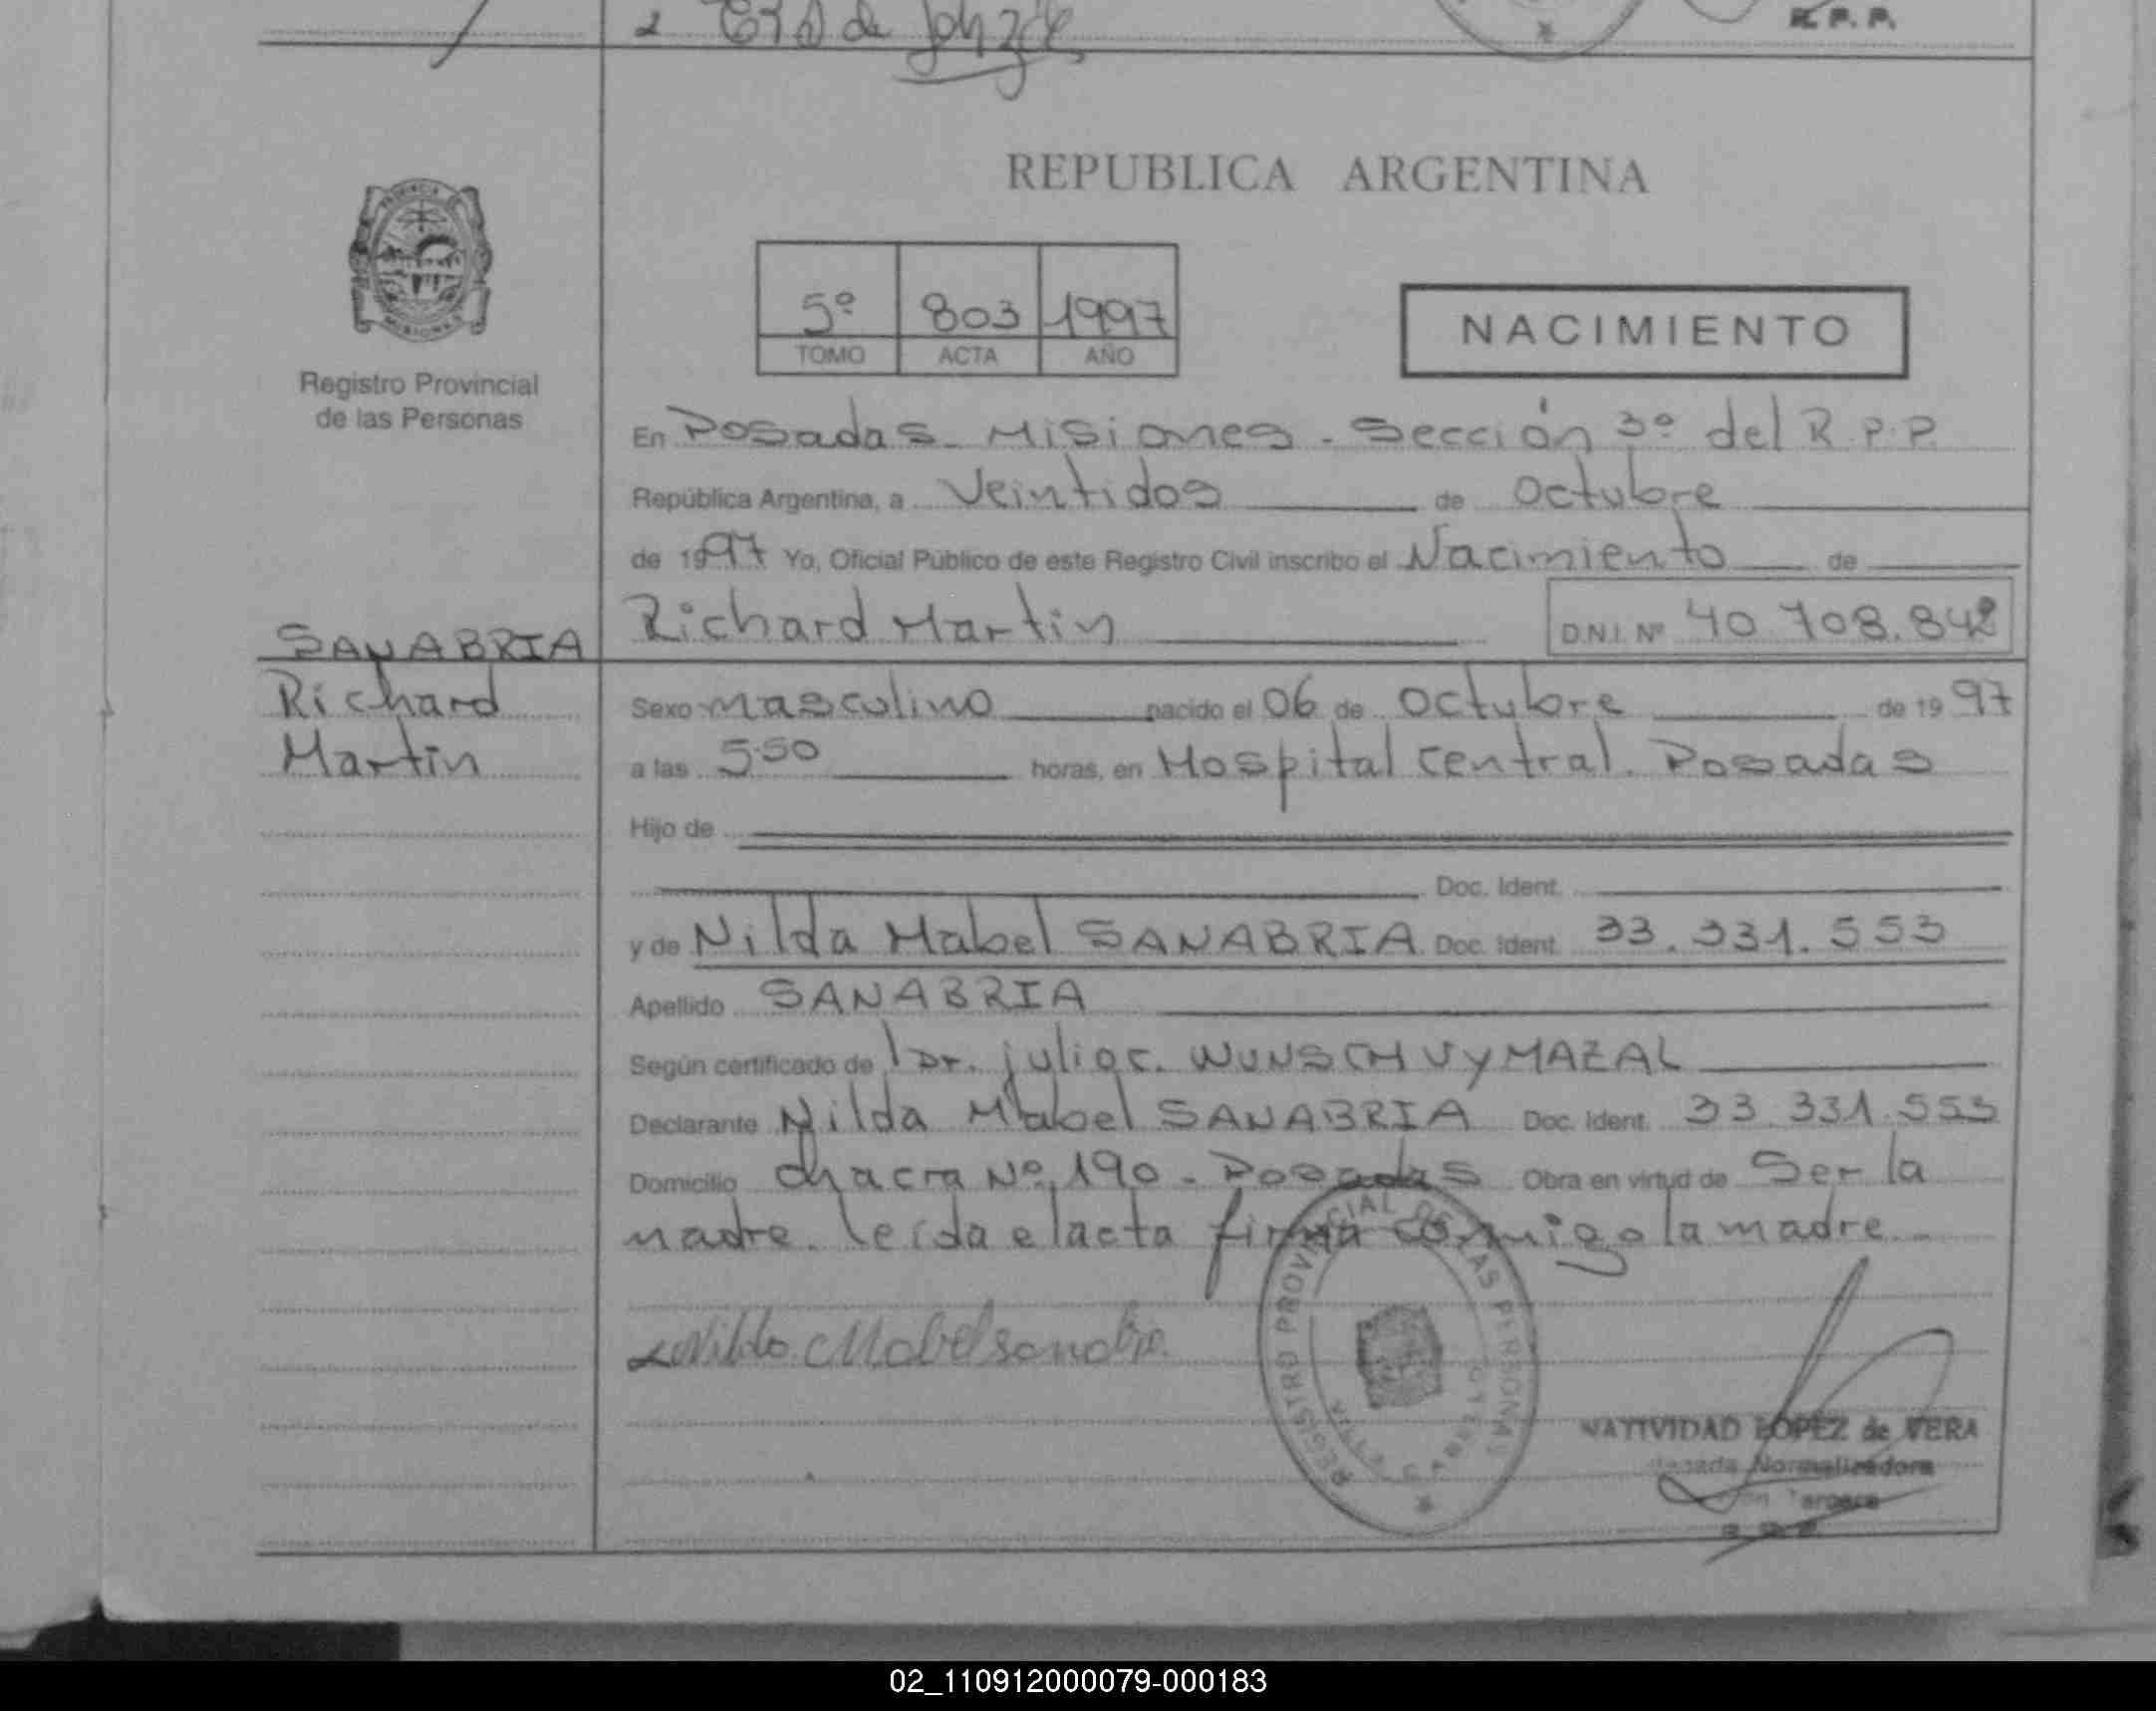 R. P. P.
REPUBLICA ARGENTINA
PROVINCIA DE
MISIONES
Registro Provincial
de las Personas
5º 803 1997
TOMO ACTA AÑO
NACIMIENTO
En Posadas - Misiones - Sección 3º del R.P.P.
República Argentina, a Veintidos de Octubre
de 1997 Yo, Oficial Público de este Registro Civil inscribo el Nacimiento de
SANABRIA Richard Martin D.N.I. Nº 40 708.842
Richard
Martin
Sexo masculino nacido el 06 de Octubre de 1997
a las 5:50 horas, en Hospital Central. Posadas
Hijo de
Doc. Ident.
y de Nilda Mabel SANABRIA Doc. Ident. 33.331.553
Apellido SANABRIA
Según certificado de Dr. julio c. WUNSCH UYMAZAL
Declarante Nilda Mabel SANABRIA Doc. Ident. 33.331.553
Domicilio chacra Nº 190 - Posadas Obra en virtud de Ser la
madre. leída el acta firma conmigo la madre.
REGISTRO PROVINCIAL DE LAS PERSONAS
Nilda Mabel Sanabria
NATIVIDAD LOPEZ de VERA
Normalizadora
Tercera
02_110912000079-000183